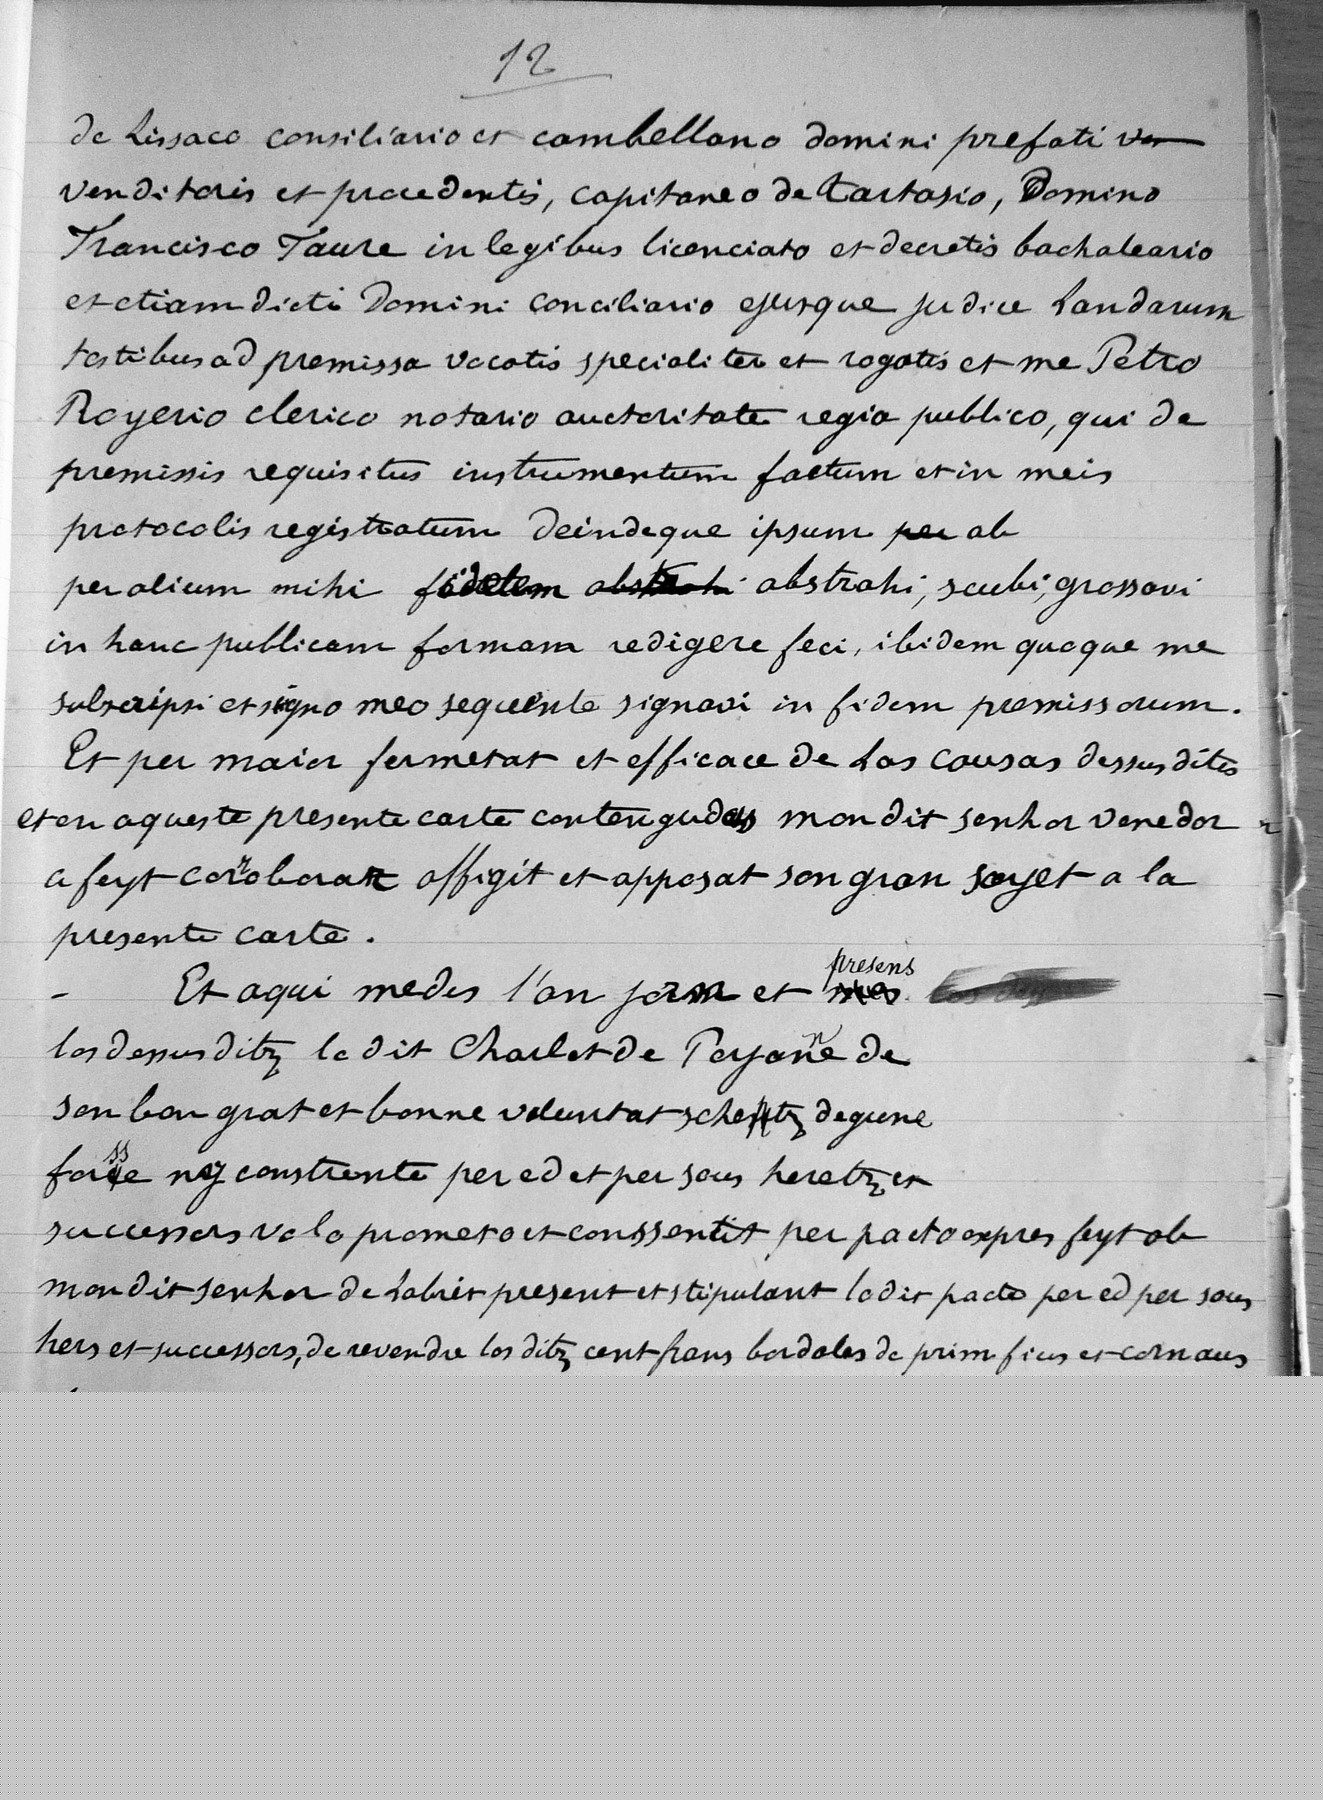 12
de Lissaco consiliario et cambellano domini prefati ven
venditoris et procedentis, capitaneo de Tartasio, Domino
Francisco Faure in legibus licenciato et decretis bachaleario
et etiam dicti Domini conciliario ejusque judice Landarum
testibus ad premissa vocatis specialiter et rogatis et me Petro
Rogerio clerico notario auctoritate regia publico, qui de
premissis requisitus instrumentum factum et in meis
protocolis registratum deindeque ipsum per ab
per alium mihi fidelem abstrahi abstrahi, scribi, grossavi
in hanc publicam formam redigere feci, ibidem quoque me
subscripsi et signo meo sequente signavi in fidem premissorum.
Et per maior fermetat et efficace de Las causas dessus dites
et en aqueste presente carte contengudas mondit senhor venedor
a feyt corroborar affigit et apposat son gran sayet a la
presente carte.
- Et aqui medes l'an jorn et presens
los dessus ditz lo dit Charlet de Poyanne de
son bon grat et bonne voluntat schentz degune
forsse ny constrente per ed et per sous heretz et
successors vo lo prometo et conssentit per pacto expres feyt ab
mondit senhor de Labrit present et stipulant lodit pacto per ed per sous
hers et successors, de revendre los ditz cent frans bordales de prim fius et cornaus